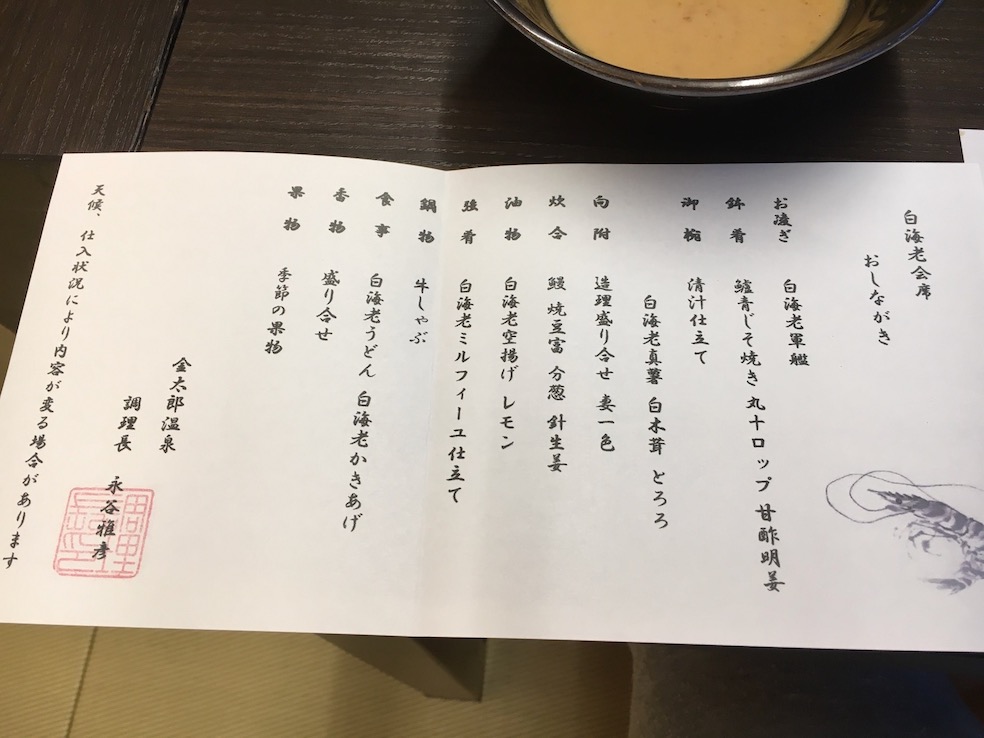 白海老会席
おしながき
お凌ぎ 白海老軍艦
鉢肴 鱸青じそ焼き 丸十ロップ 甘酢明姜
御椀 清汁仕立て
白海老真薯 白木茸 とろろ
向附 造理盛り合せ 妻一色
炊合 鰻 焼豆富 分葱 針生姜
油物 白海老空揚げ レモン
強肴 白海老ミルフィーユ仕立て
鍋物 牛しゃぶ
食事 白海老うどん 白海老かきあげ
香物 盛り合せ
果物 季節の果物
金太郎温泉
調理長 永谷雅彦
天候、仕入状況により内容が変る場合があります